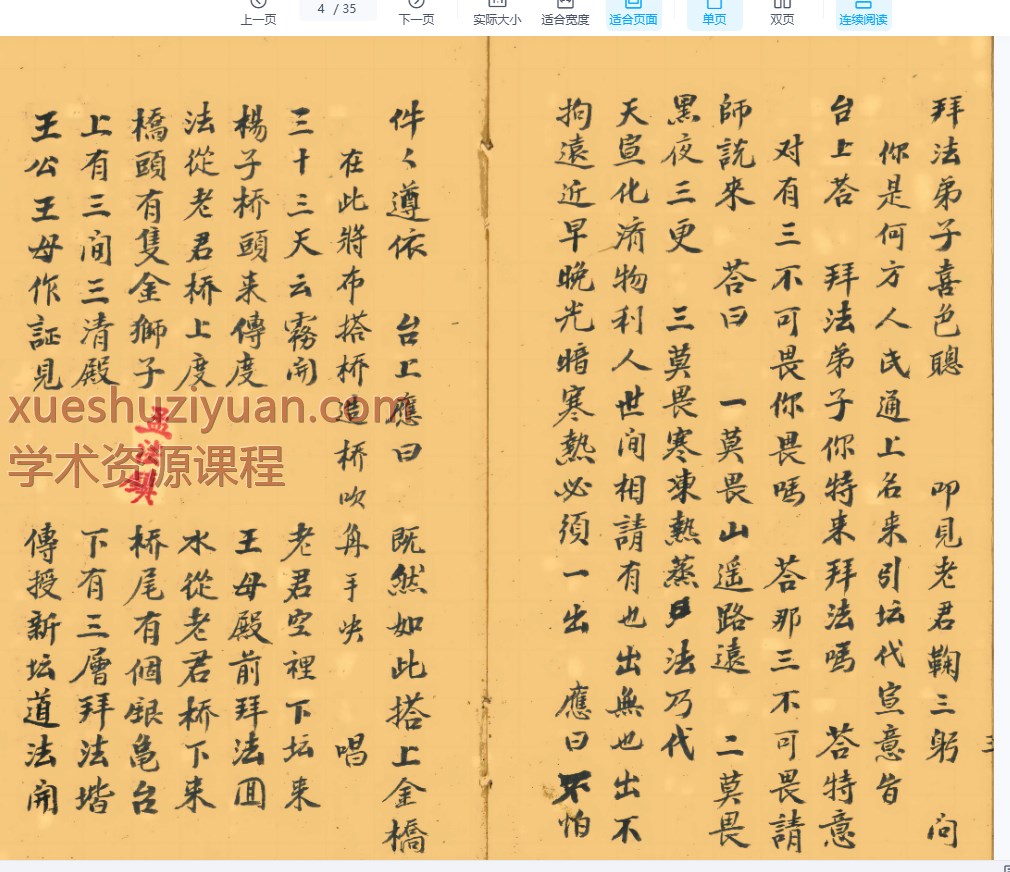 上一页
4 / 35
下一页
实际大小
适合宽度
适合页面
单页
双页
连续阅读
拜法弟子喜色聰 叩見老君鞠三躬 问
你是何方人氏通上名来引坛代宣意旨
台上荅 拜法弟子你特来拜法嗎 荅特意
对有三不可畏你畏嗎 荅那三不可畏請
師説來 荅曰 一莫畏山遥路遠 二莫畏
黑夜三更 三莫畏寒凍熱蒸 法乃代
天宣化济物利人世间相請有也出無也出不
拘遠近早晚光暗寒熱必須一出 應曰不怕
件々遵依 台上應曰 既然如此搭上金橋
在此將布搭桥造桥吹角手诀 唱
三十三天云霧開 老君空裡下坛来
楊子桥頭来傳度 王母殿前拜法囬
法從老君桥上度 水從老君桥下来
橋頭有隻金獅子 桥尾有個銀亀台
上有三间三清殿 下有三層拜法堦
王公王母作証見 傳授新坛道法開
xueshuziyuan.com
学术资源课程